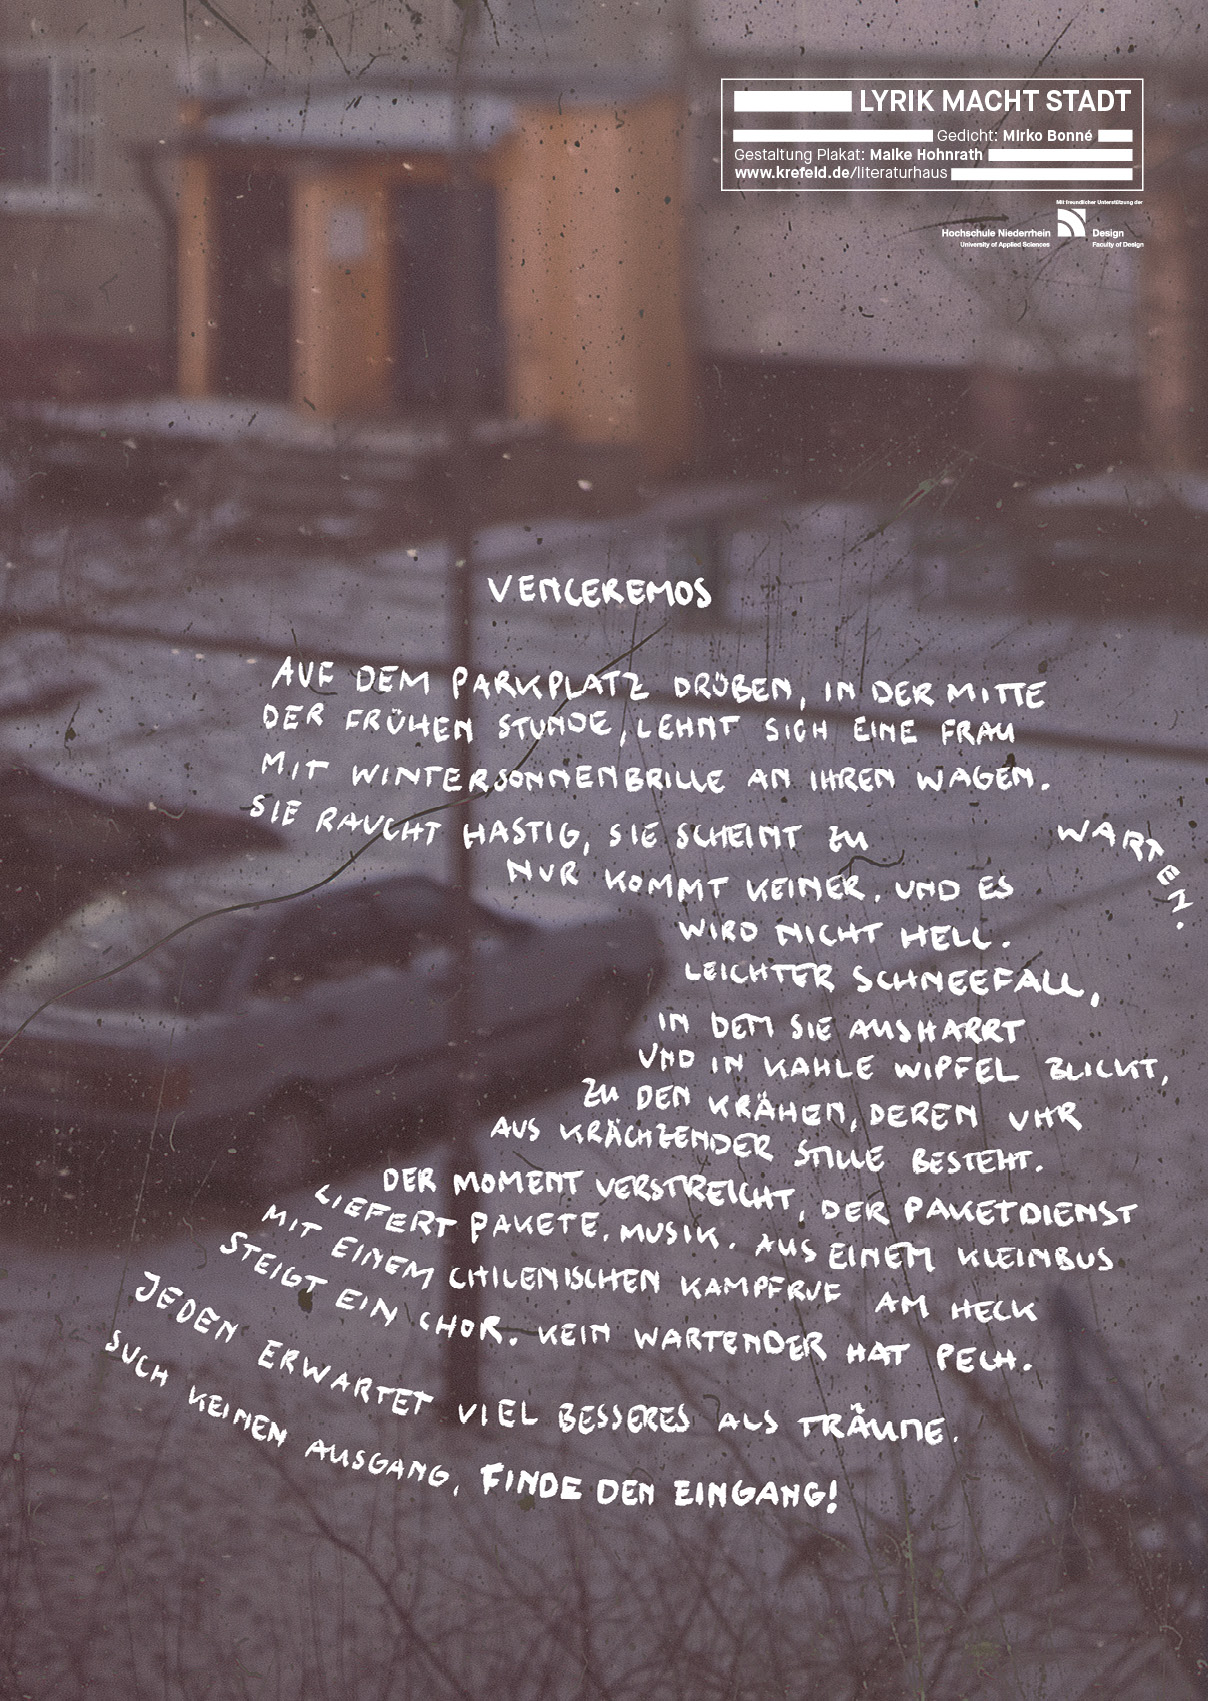 LYRIK MACHT STADT
Gedicht: Mirko Bonné
Gestaltung Plakat: Maike Hohnrath
www.krefeld.de/literaturhaus
Mit freundlicher Unterstützung der
Hochschule Niederrhein
University of Applied Sciences
Design
Faculty of Design
VENCEREMOS
AUF DEM PARKPLATZ DRÜBEN, IN DER MITTE
DER FRÜHEN STUNDE, LEHNT SICH EINE FRAU
MIT WINTERSONNENBRILLE AN IHREN WAGEN.
SIE RAUCHT HASTIG, SIE SCHEINT ZU WARTEN.
NUR KOMMT KEINER. UND ES
WIRD NICHT HELL.
LEICHTER SCHNEEFALL,
IN DEM SIE AUSHARRT
UND IN KAHLE WIPFEL BLICKT,
ZU DEN KRÄHEN, DEREN UHR
AUS KRÄCHZENDER STILLE BESTEHT.
DER MOMENT VERSTREICHT, DER PAKETDIENST
LIEFERT PAKETE. MUSIK. AUS EINEM KLEINBUS
MIT EINEM CHILENISCHEN KAMPFRUF AM HECK
STEIGT EIN CHOR. KEIN WARTENDER HAT PECH.
JEDEN ERWARTET VIEL BESSERES ALS TRÄUME.
SUCH KEINEN AUSGANG, FINDE DEN EINGANG!